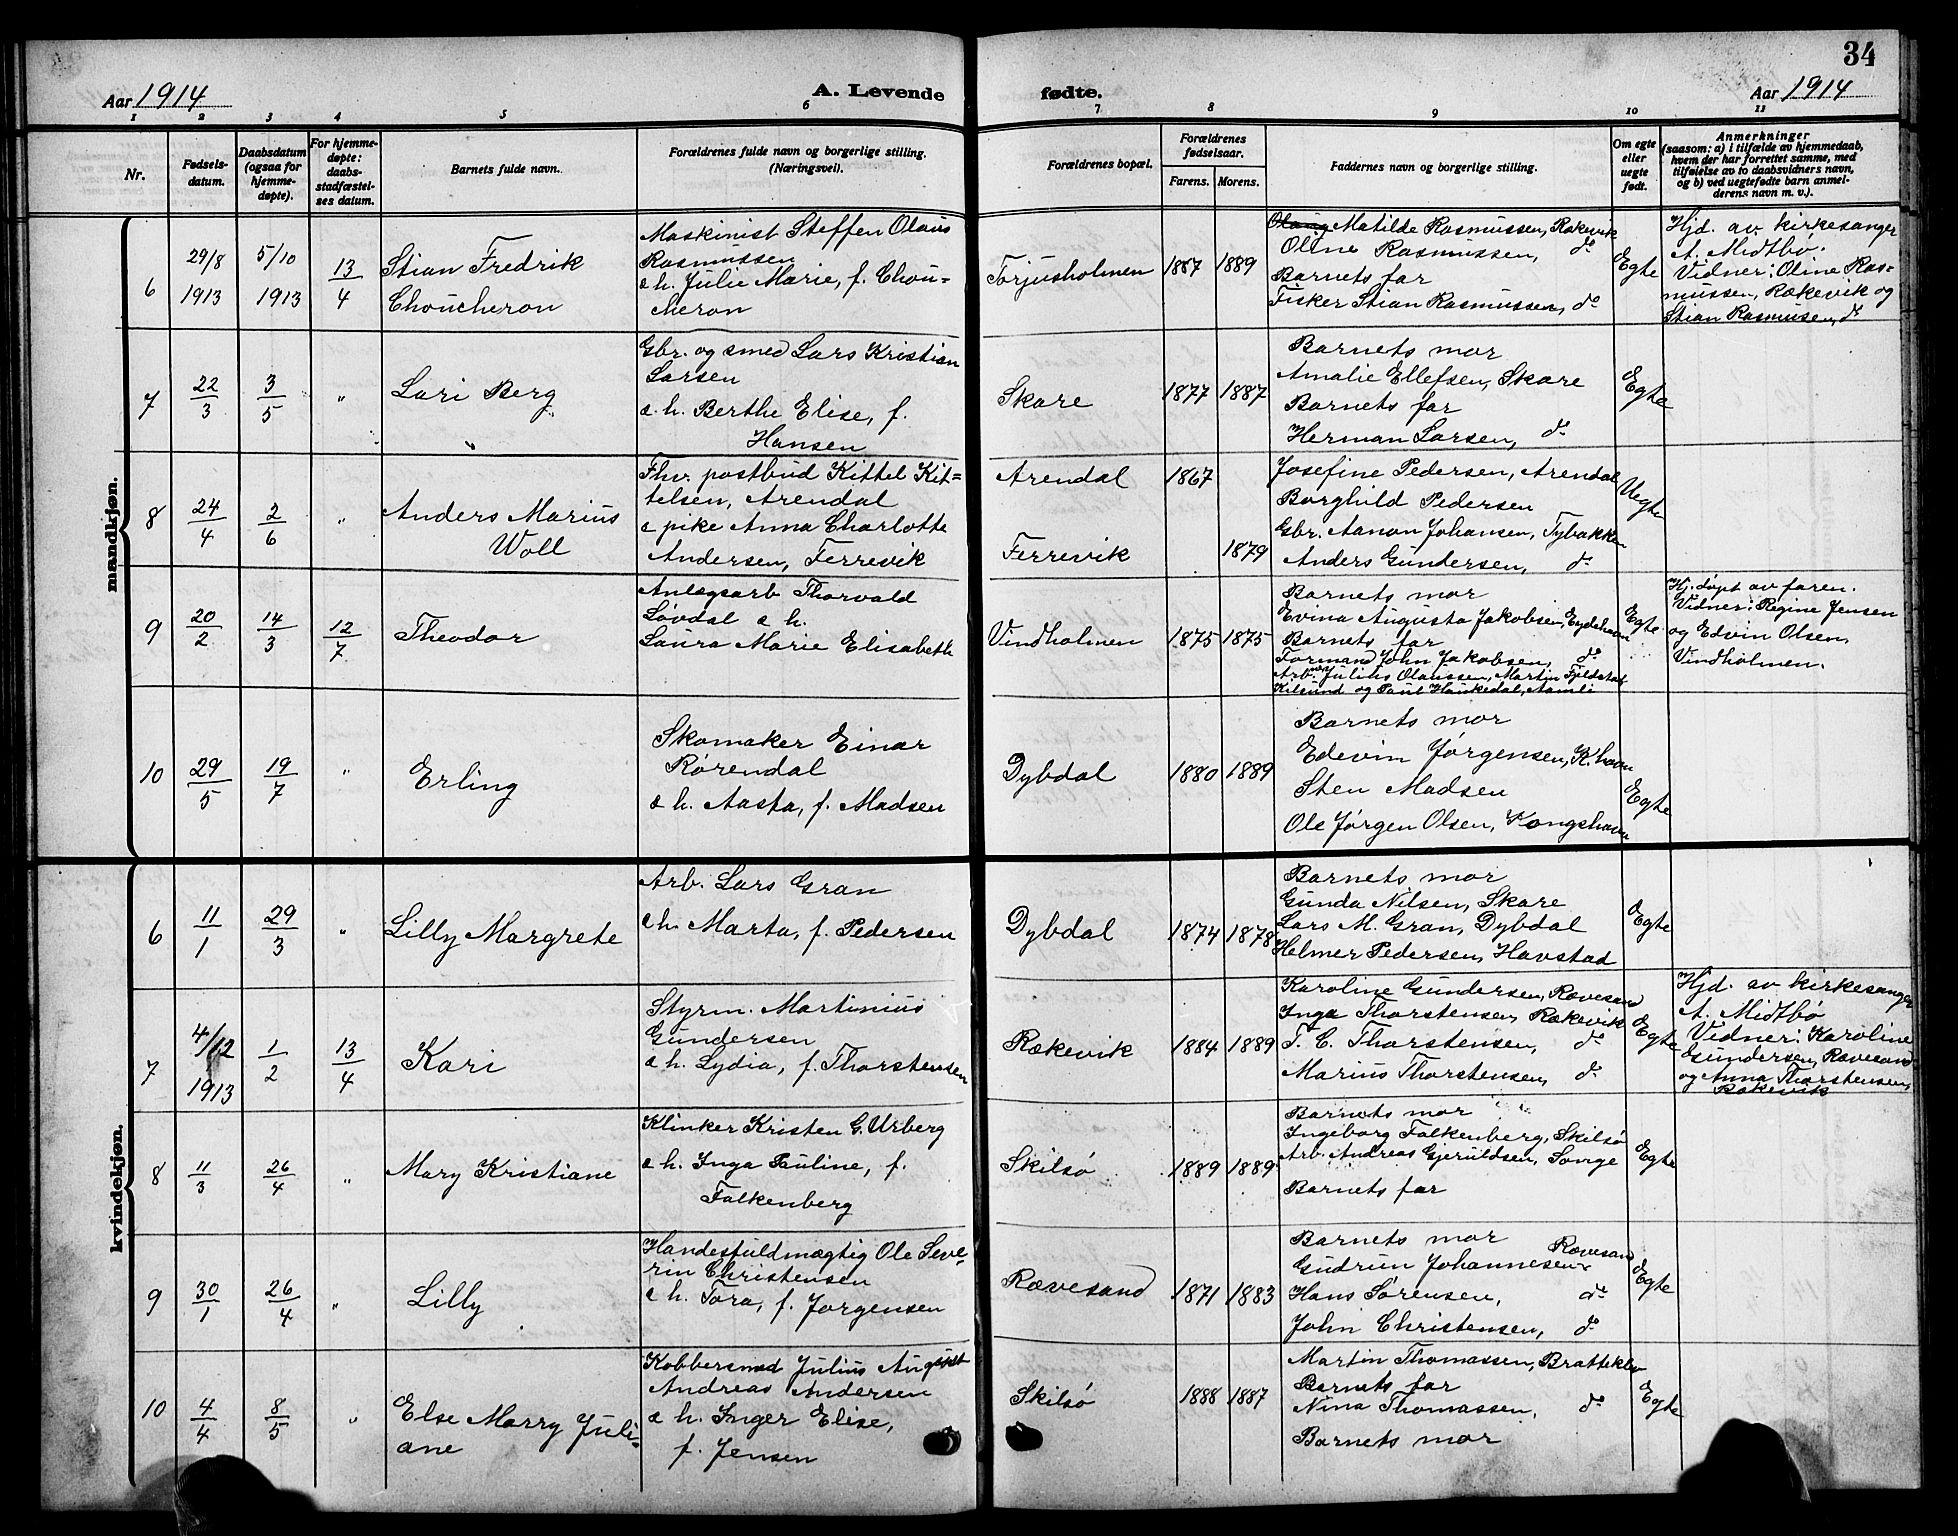 34
Aar 1914
A. Levende
fødte.
Aar 1914
1 2 3 4 5 6 7 8 9 10 11
Nr.
Fødsels-
datum.
Daabsdatum
(ogsaa for
hjemme-
døpte).
For hjemme-
døpte:
daabs-
stadfæstel-
ses datum.
Barnets fulde navn.
Forældrenes fulde navn og borgerlige stilling.
(Næringsvei).
Forældrenes bopæl.
Forældrenes
fødselsaar.
Farens. Morens.
Faddernes navn og borgerlige stilling.
Om egte
eller
uegte
født.
Anmerkninger
(saasom: a) i tilfælde av hjemmedaab,
hvem der har forrettet samme, med
tilføielse av to daabsvidners navn,
og b) ved uegtefødte barn anmel-
derens navn m. v.).
mandkjøn.
6
29/8
1913
5/10
1913
13/4
Stian Fredrik
Choucheron
Maskinist Steffen Olaus
Rasmussen
& h. Julie Marie, f. Chou-
cheron
Torjusholmen
1887 1889
Matilde Rasmussen, Rækevik
Oline Rasmussen, do
Barnets far
Fisker Stian Rasmussen, do
Egte
Hjd. av kirkesanger
A. Midtbø.
Vidner: Oline Ras-
mussen, Rækevik og
Stian Rasmussen, do
7
22/3
3/5
"
Lari Berg
Gbr. og smed Lars Kristian
Larsen
& h. Berthe Elise, f.
Hansen
Skare
1877 1887
Barnets mor
Amalie Ellefsen, Skare
Barnets far
Herman Larsen, do
Egte
8
24/4
2/6
"
Anders Marius
Woll
Fhv. postbud Kittel Kit=
telsen, Arendal
& pike Anna Charlotte
Andersen, Ferrevik
Arendal
Ferrevik
1867
1879
Josefine Pedersen, Arendal
Borghild Pedersen
Gbr. Aanon Johansen, Tybakken
Anders Gundersen, do
Uegte
9
20/2
14/3
12/7
Theodor
Anlægsarb. Thorvald
Løvdal & h.
Laura Marie Elisabeth
Vindholmen
1875 1875
Barnets mor
Evina Augusta Jakobsen, Eydehavn
Barnets far
Formand John Jakobsen, do
Arb. Julius Olaussen, Martin Fjeldstad
Kilsund og Paul Haukedal, Aamli
Egte
Hj. døpt av faren.
Vidner: Regine Jensen
og Edvin Olsen,
Vindholmen.
10
29/5
19/7
"
Erling
Skomaker Einar
Rørendal
& h. Aasta, f. Madsen
Dybdal
1880 1889
Barnets mor
Edevin Jørgensen, K.havn
Sten Madsen
Ole Jørgen Olsen, Kongshavn
Egte
kvindekjøn.
6
11/1
29/3
"
Lilly Margrete
Arb. Lars Gran
& h. Marta, f. Pedersen
Dybdal
1874 1878
Barnets mor
Gunda Nilsen, Skare
Lars M. Gran, Dybdal
Helmer Pedersen, Havstad
Egte
7
4/12
1913
1/2
13/4
Kari
Styrm. Martinius
Gundersen
& h. Lydia, f. Thorstensen
Rækevik
1884 1889
Karoline Gundersen, Rævesand
Inga Thorstensen, Rækevik
T. C. Thorstensen, do
Marius Thorstensen, do
Egte
Hjd. av kirkesanger
A. Midtbø
Vidner: Karoline
Gundersen, Rævesand
og Anna Thorstensen,
Rækevik
8
11/3
26/4
"
Mary Kristiane
Klinker Kristen G. Urberg
& h. Inga Pauline, f.
Falkenberg
Skilsø
1889 1889
Barnets mor
Ingeborg Falkenberg, Skilsø
Arb. Andreas Gjeruldsen, Songe
Barnets far
Egte
9
30/1
26/4
"
Lilly
Handesfuldmægtig Ole Seve-
rin Christensen
& h. Tora, f. Jørgensen
Rævesand
1871 1883
Barnets mor
Gudrun Johannesen, Rævesand
Hans Sørensen, do
John Christensen, do
Egte
10
4/4
8/5
"
Else Marry Juli-
ane
Kobbersmed Julius August
Andreas Andersen
& h. Inger Elise,
f. Jensen
Skilsø
1888 1887
Martin Thomassen, Bratteklev
Barnets far
Nina Thomassen, do
Barnets mor
Egte